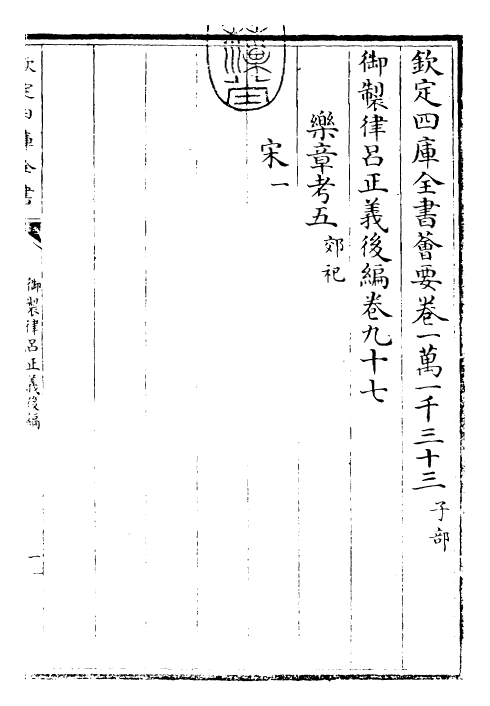 欽定四庫全書薈要卷一萬一千三十三 子部
御製律呂正義後編卷九十七
樂章考五 郊祀
宋一
欽定四庫全書
御製律呂正義後編
一